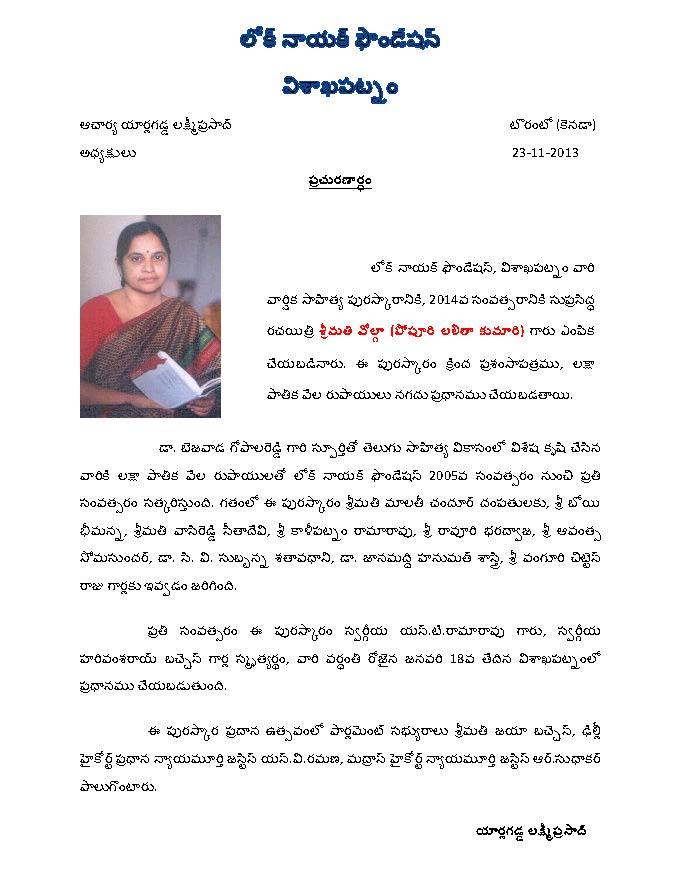 లోక్ నాయక్ ఫౌండేషన్
విశాఖపట్నం
ఆచార్య యార్లగడ్డ లక్ష్మీప్రసాద్ టొరంటో (కెనడా)
అధ్యక్షులు 23-11-2013
ప్రచురణార్థం
లోక్ నాయక్ ఫౌండేషన్, విశాఖపట్నం వారి
వార్షిక సాహిత్య పురస్కారానికి, 2014వ సంవత్సరానికి సుప్రసిద్ధ
రచయిత్రి శ్రీమతి వోల్గా (పోపూరి లలితా కుమారి) గారు ఎంపిక
చేయబడినారు. ఈ పురస్కారం క్రింద ప్రశంసాపత్రము, లక్షా
పాతిక వేల రుపాయులు నగదు ప్రధానము చేయబడతాయి.
డా. బెజవాడ గోపాలరెడ్డి గారి స్పూర్తితో తెలుగు సాహిత్య వికాసంలో విశేష కృషి చేసిన
వారికి లక్షా పాతిక వేల రుపాయులతో లోక్ నాయక్ ఫౌండేషన్ 2005వ సంవత్సరం నుంచి ప్రతి
సంవత్సరం సత్కరిస్తుంది. గతంలో ఈ పురస్కారం శ్రీమతి మాలతీ చందూర్ దంపతులకు, శ్రీ బోయి
భీమన్న, శ్రీమతి వాసిరెడ్డి సీతాదేవి, శ్రీ కాళీపట్నం రామారావు, శ్రీ రావూరి భరద్వాజ, శ్రీ ఆవంత్స
సోమసుందర్, డా. సి. వి. సుబ్బన్న శతావధాని, డా. జానమద్ది హనుమత్ శాస్త్రి, శ్రీ వంగూరి చిట్టెన్
రాజు గార్లకు ఇవ్వడం జరిగింది.
ప్రతి సంవత్సరం ఈ పురస్కారం స్వర్గీయ యన్.టి.రామారావు గారు, స్వర్గీయ
హరివంశరాయ్ బచ్చెన్ గార్ల స్మృత్యర్థం, వారి వర్ధంతి రోజైన జనవరి 18వ తేదిన విశాఖపట్నంలో
ప్రధానము చేయబడుతుంది.
ఈ పురస్కార ప్రదాన ఉత్సవంలో పార్లమెంట్ సభ్యురాలు శ్రీమతి జయా బచ్చెన్, ఢిల్లీ
హైకోర్ట్ ప్రధాన న్యాయమూర్తి జస్టిస్ యన్.వి.రమణ, మద్రాస్ హైకోర్ట్ న్యాయమూర్తి జస్టిస్ ఆర్.సుధాకర్
పాలుగొంటారు.
యార్లగడ్డ లక్ష్మీప్రసాద్